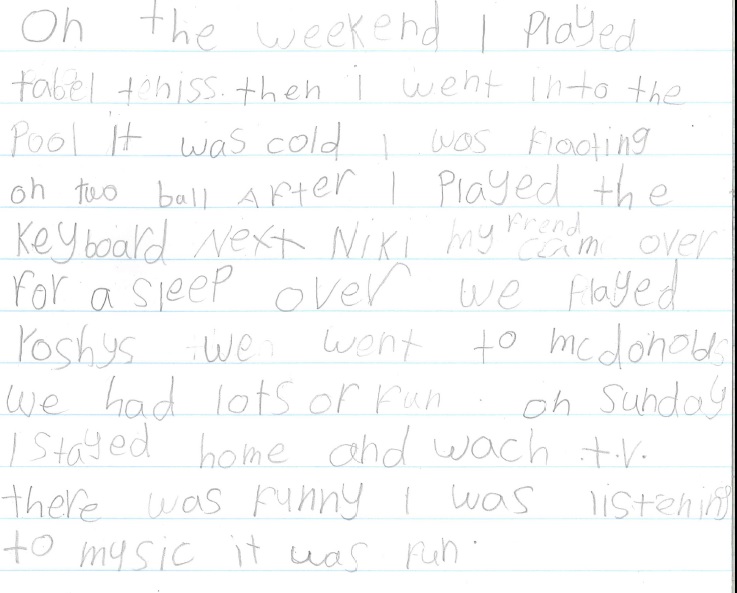 On the weekend I played
tabel teniss. then i went into the
Pool It was cold I was floating
on two ball After I Played the
Keyboard Next Niki my frend cam over
for a sleep over we played
roshys we went to mcdonolds
we had lots of fun. on Sunday
I stayed home and wach t.v.
there was funny I was listening
to mysic it was fun.